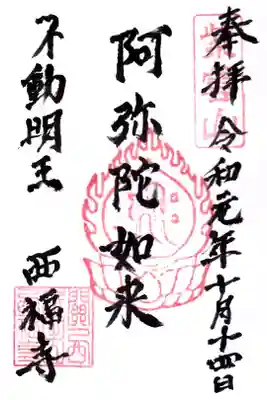 奉拝 令和元年十月十四日
阿弥陀如来
不動明王 西福寺